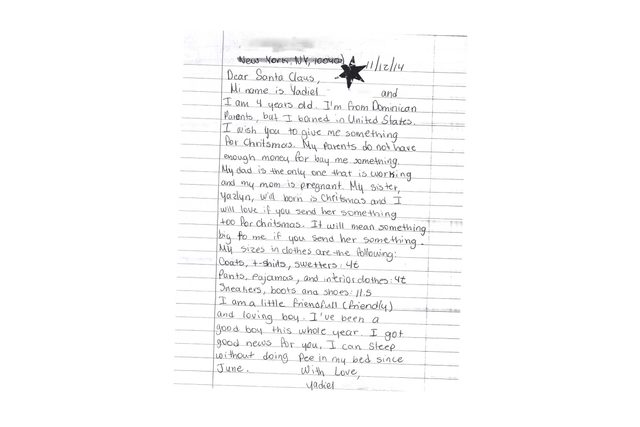 New York, NY, 10040
11/12/14
Dear Santa Claus,
Mi name is Yadiel and
I am 4 years old. I'm from Dominican
Parents, but I borned in United States.
I wish you to give me something
for Chritsmas. My Parents do not have
enough money for buy me something.
My dad is the only one that is working
and my mom is pregnant. My sister,
Yazlyn, will born is Christmas and I
will love if you send her something
too for Chritsmas. It will mean something
big to me if you send her something.
My sizes in clothes are the following:
Coats, t-shirts, swetters: 4t
Pants, Pajamas, and interior clothes: 4t
Sneakers, boots and shoes: 11.5
I am a little friendfull (friendly)
and loving boy. I've been a
good boy this whole year. I got
good news for you. I can sleep
without doing Pee in my bed since
June. With Love,
Yadiel